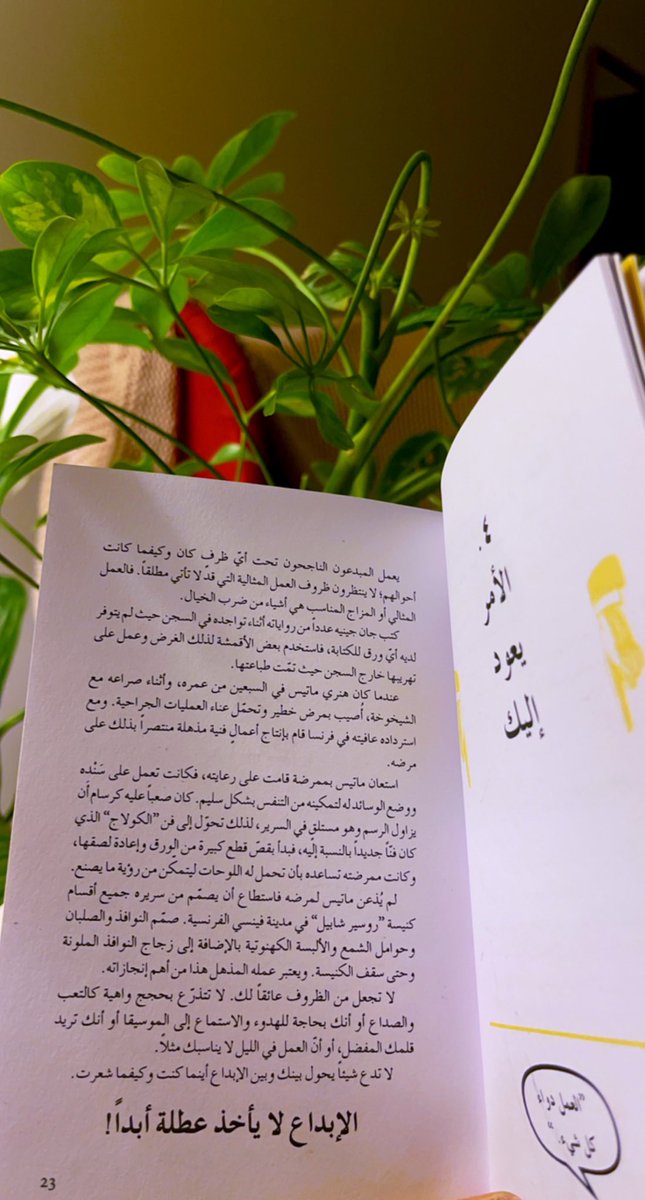 ٤.
الأمر
يعود
إليك
"العمل دواء
كل شيء."
يعمل المبدعون الناجحون تحت أيّ ظرف كان وكيفما كانت
أحوالهم؛ لا ينتظرون ظروف العمل المثالية التي قدّ لا تأتي مطلقاً. فالعمل
المثالي أو المزاج المناسب هي أشياء من ضرب الخيال.
كتب جان جينيه عدداً من رواياته أثناء تواجده في السجن حيث لم يتوفر
لديه أيّ ورق للكتابة، فاستخدم بعض الأقمشة لذلك الغرض وعمل على
تهريبها خارج السجن حيث تمّت طباعتها.
عندما كان هنري ماتيس في السبعين من عمره، وأثناء صراعه مع
الشيخوخة، أُصيب بمرض خطير وتحمّل عناء العمليات الجراحية. ومع
استرداده عافيته في فرنسا قام بإنتاج أعمالٍ فنية مذهلة منتصراً بذلك على
مرضه.
استعان ماتيس بممرضة قامت على رعايته، فكانت تعمل على سَنْده
ووضع الوسائد له لتمكينه من التنفس بشكل سليم. كان صعباً عليه كرسام أن
يزاول الرسم وهو مستلقٍ في السرير، لذلك تحوّل إلى فن "الكولاج" الذي
كان فنّاً جديداً بالنسبة إليه، فبدأ بقصّ قطع كبيرة من الورق وإعادة لصقها،
وكانت ممرضته تساعده بأن تحمل له اللوحات ليتمكّن من رؤية ما يصنع.
لم يُذعن ماتيس لمرضه فاستطاع أن يصمّم من سريره جميع أقسام
كنيسة "روسير شابيل" في مدينة فينسي الفرنسية. صمّم النوافذ والصلبان
وحوامل الشمع والألبسة الكهنوتية بالإضافة إلى زجاج النوافذ الملونة
وحتى سقف الكنيسة. ويعتبر عمله المذهل هذا من أهم إنجازاته.
لا تجعل من الظروف عائقاً لك. لا تتذرّع بحجج واهية كالتعب
والصداع أو أنك بحاجة للهدوء والاستماع إلى الموسيقا أو أنك تريد
قلمك المفضل، أو أنّ العمل في الليل لا يناسبك مثلاً.
لا تدع شيئاً يحول بينك وبين الإبداع أينما كنت وكيفما شعرت.
الإبداع لا يأخذ عطلة أبداً!
23